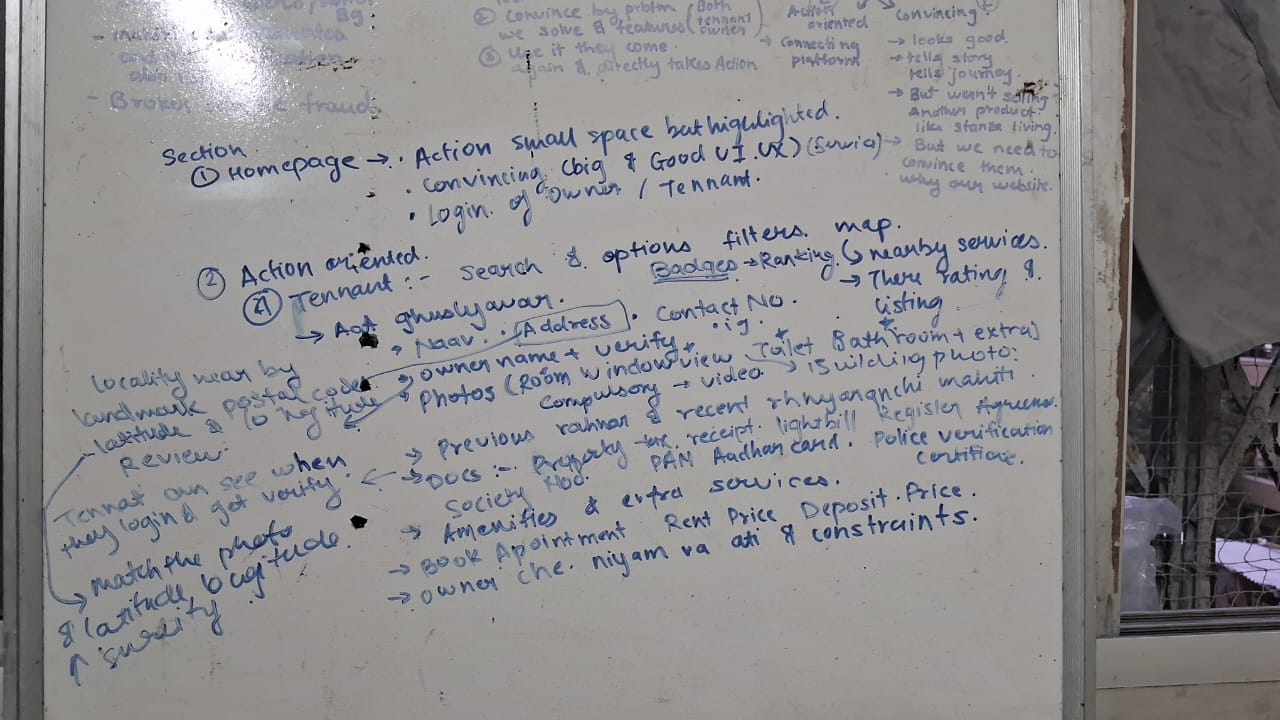 ② Convince by probtm (Both tennant owner)
we solve & features
③ Use it they come
again & directly takes Action
Action oriented
→ Connecting platform
Convincing
→ looks good.
→ tells story
tells journey.
→ But wern't selling
Another product
like stanza living.
→ But we need to
convince them.
why our website.
- Broker fraud
Section
① Homepage → . Action small space but highlighted.
. Convincing (big & Good UI.UX) (Servia)
. Login. of Owner / Tennant.
② Action oriented.
Tennant :- Search & options filters. map.
Badges → Ranking. nearby services.
→ There rating &
listing
→ ghuslyavar.
Naav. (Address). Contact No.
→ owner name + verify
→ Photos (Room window view Toilet Bathroom + extra)
Compulsory → video → building photo:
→ Previous rahnar & recent rhnyanachi mahiti.
→ Docs :- Property tax. receipt. lightbill Register Agreeme.
PAN Aadhar card. Police verification
Society Noc. certifiate.
→ Amenities & extra services.
→ Book Apointment Rent Price Deposit. Price.
→ owner che. niyam va ati & constraints.
Locality near by
landmark postal code
latitude & longitude
Review.
Tennat can see when
they login & get verify.
→ match the photo
& latitude longitude.
↑ surity